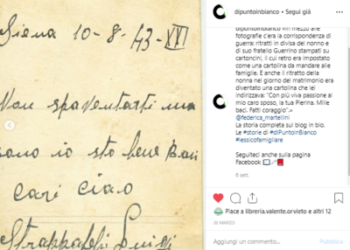 Siena 10-8-43-XXI
Non spaventarti ma
sono io sto bene Baci
cari ciao
Strappafelci Luigi
dipuntoinbianco • Segui già
dipuntoinbianco In mezzo alle
fotografie c'era la corrispondenza di
guerra: ritratti in divisa del nonno e
di suo fratello Guerrino stampati su
cartoncini, il cui retro era impostato
come una cartolina da mandare alle
famiglie. E anche il ritratto della
nonna nel giorno del matrimonio era
diventato una cartolina che lei
indirizzava: "Con più viva passione al
mio caro sposo, la tua Pierina. Mille
baci. Fatti coraggio".»
@federica_martellini
La storia completa sul blog in bio.
Le #storie di #diPuntoinBianco
#lessicofamigliare
Seguiteci anche sulla pagina
Facebook
6 sett.
Piace a libreria.valente.orvieto e altri 12
26 MARZO
Aggiungi un commento...